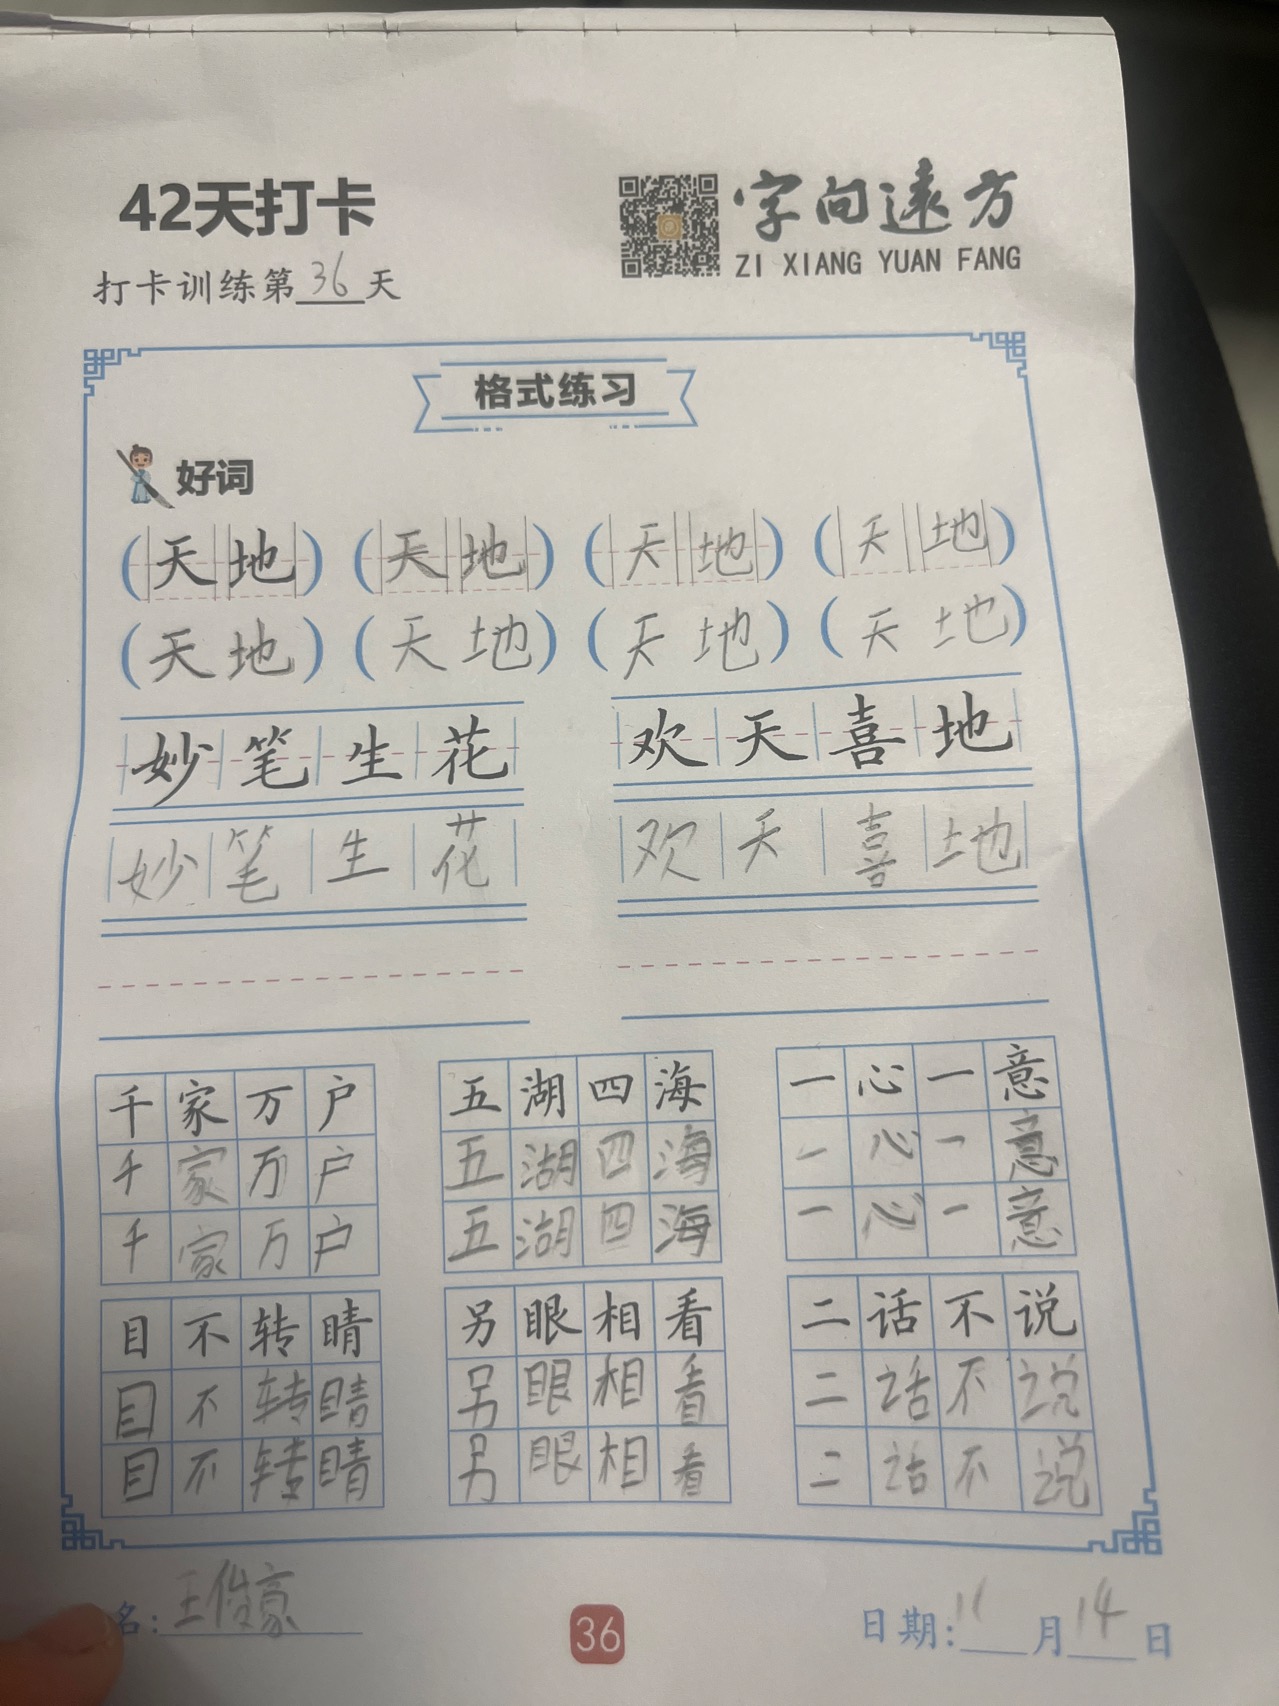 42天打卡
字向遠方
ZI XIANG YUAN FANG
打卡训练第36天
格式练习
好词
(天地) (天地) (天地) (天地)
(天地) (天地) (天地) (天地)
妙笔生花 欢天喜地
妙笔生花 欢天喜地
千家万户 五湖四海 一心一意
千家万户 五湖四海 一心一意
千家万户 五湖四海 一心一意
目不转睛 另眼相看 二话不说
目不转睛 另眼相看 二话不说
目不转睛 另眼相看 二话不说
名:王俊豪 36 日期:11月14日